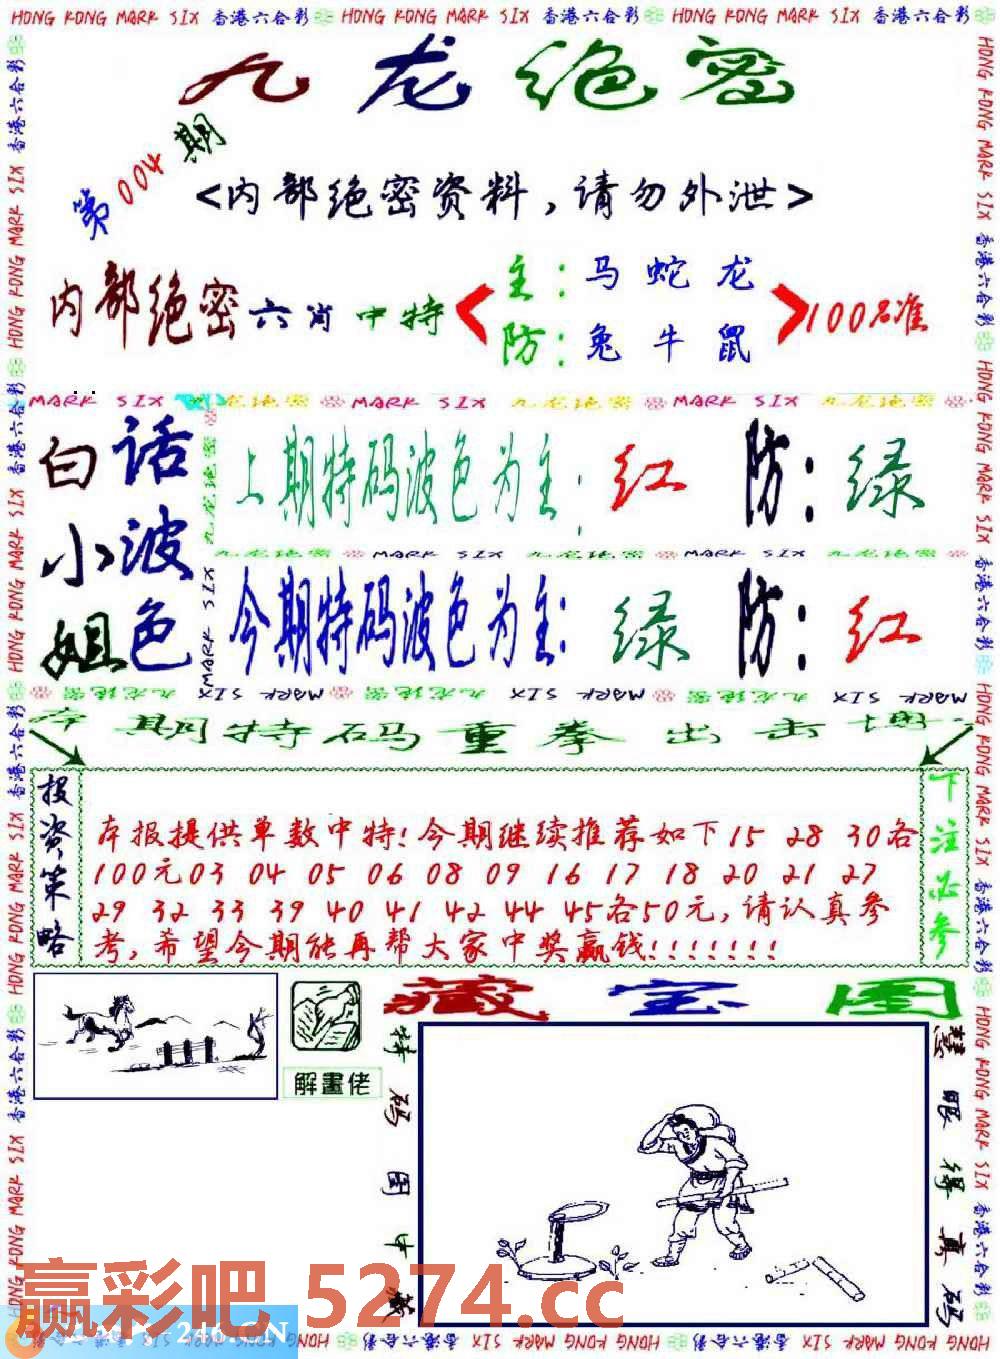 HONG KONG MARK SIX 香港六合彩 HONG KONG MARK SIX 香港六合彩 HONG KONG MARK SIX 香港六合彩
九龙绝密
第004期
<内部绝密资料,请勿外泄>
内部绝密六肖中特
主:马蛇龙
防:兔牛鼠
100%准
MARK SIX 九龙绝密 MARK SIX 九龙绝密 MARK SIX 九龙绝密
白话
小波
姐色
上期特码波色为主:红 防:绿
九龙绝密 MARK SIX 九龙绝密 MARK SIX 九龙绝密
今期特码波色为主:绿 防:红
MARK SIX 九龙绝密 MARK SIX 九龙绝密 MARK SIX 九龙绝密 MARK SIX
本期特码重拳出击
投资策略
本报提供单数中特!今期继续推荐如下15 28 30各
100元03 04 05 06 08 09 16 17 18 20 21 27
29 32 33 39 40 41 42 44 45各50元,请认真参
考,希望今期能再帮大家中奖赢钱!!!!!!!
下注必参
解畫佬
藏宝图
特码图中藏
慧眼得真码
赢彩吧 5274.cc
246.CN